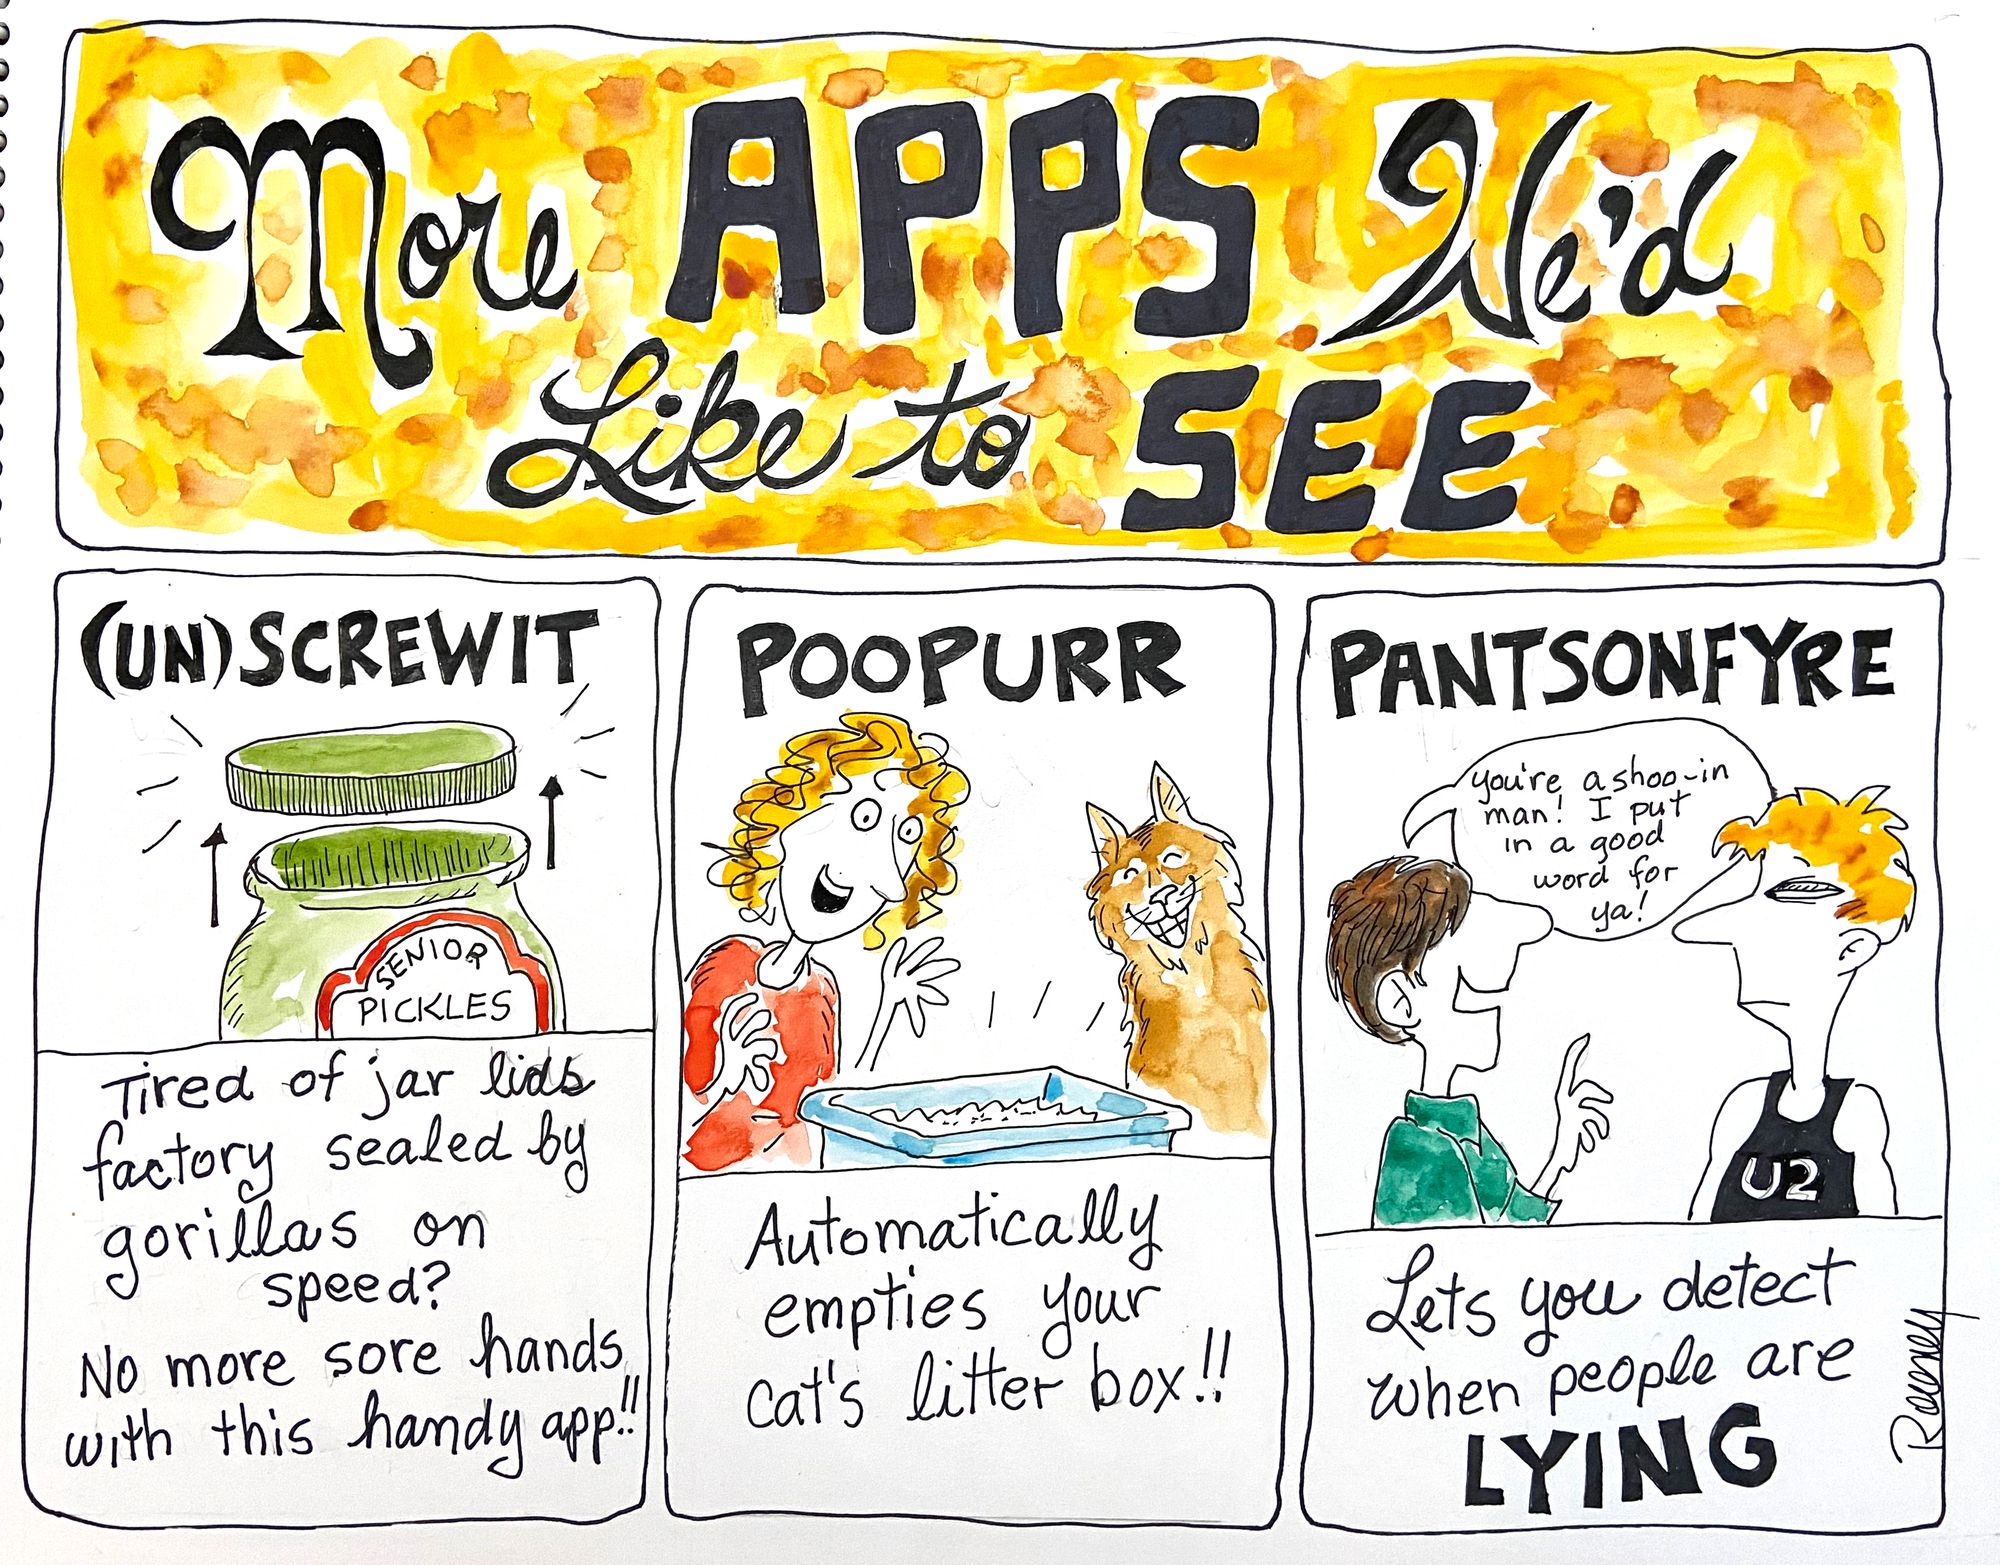 More APPS We'd
Like to SEE
(UN)SCREWIT
SENIOR
PICKLES
Tired of jar lids
factory sealed by
gorillas on
speed?
No more sore hands
with this handy app!!
POOPURR
Automatically
empties your
cat's litter box!!
PANTSONFYRE
you're a shoo-in
man! I put
in a good
word for
ya!
U2
Lets you detect
when people are
LYING